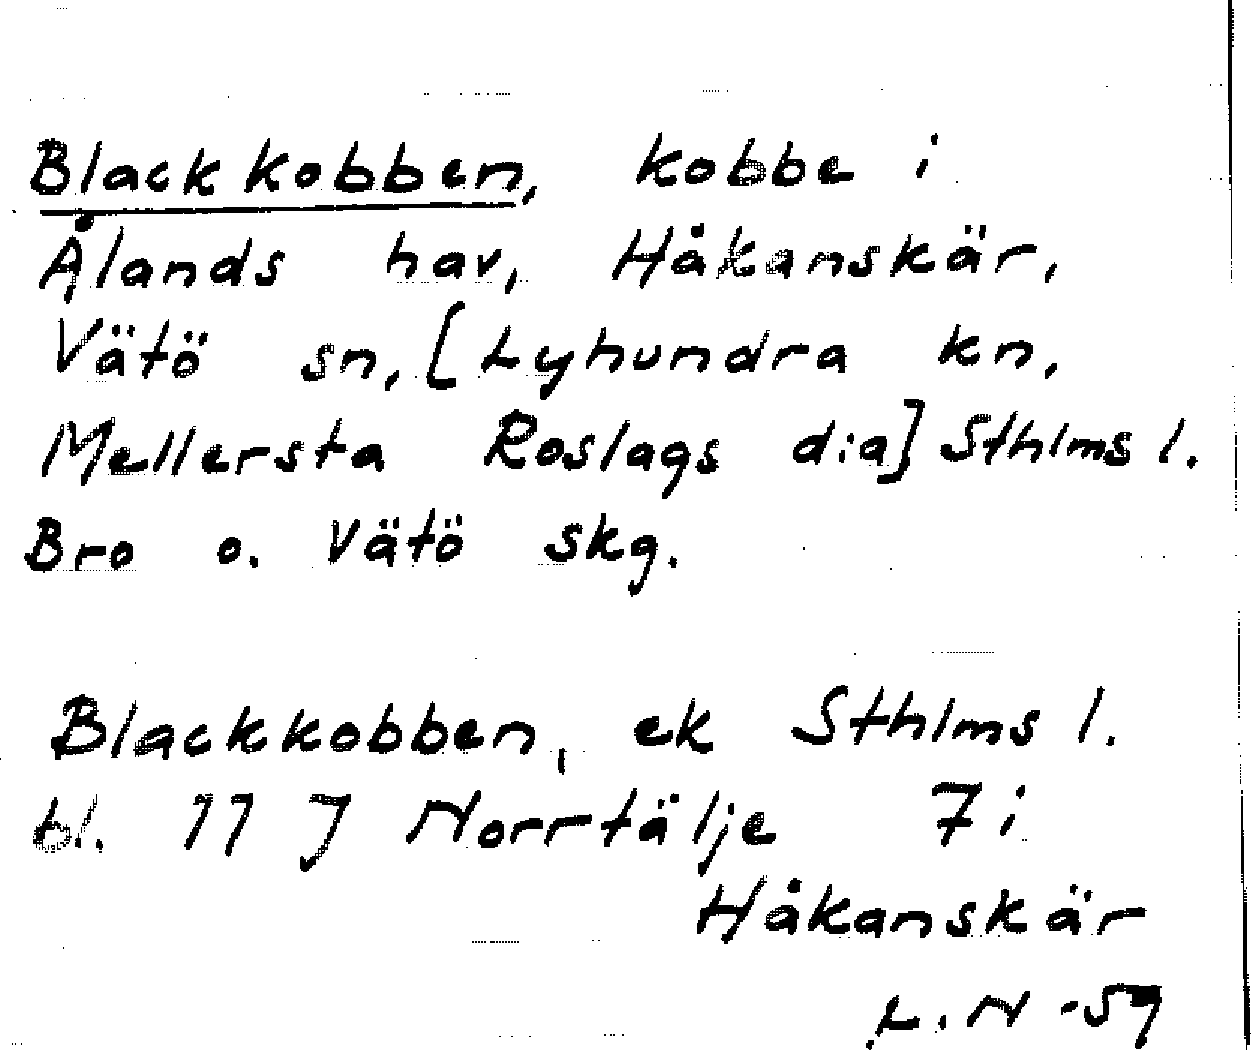 Blackkobben, kobbe i
Ålands hav, Håkanskär,
Vätö sn, [Lyhundra kn,
Mellersta Roslags dia] Sthlms l.
Bro o. Vätö skg.
Blackkobben, ek Sthlms l.
bl. 11 J Norrtälje 7 i
Håkanskär
L. N -59